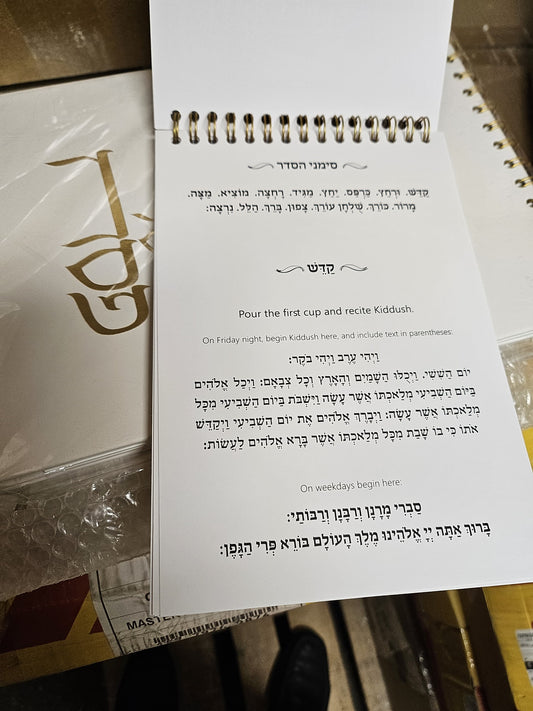 סימני הסדר
קַדֵּשׁ. וּרְחַץ. כַּרְפַּס. יַחַץ. מַגִּיד. רָחְצָה. מוֹצִיא. מַצָּה.
מָרוֹר. כּוֹרֵךְ. שֻׁלְחָן עוֹרֵךְ. צָפוּן. בָּרֵךְ. הַלֵּל. נִרְצָה:
קַדֵּשׁ
Pour the first cup and recite Kiddush.
On Friday night, begin Kiddush here, and include text in parentheses:
וַיְהִי עֶרֶב וַיְהִי בֹקֶר:
יוֹם הַשִּׁשִּׁי. וַיְכֻלּוּ הַשָּׁמַיִם וְהָאָרֶץ וְכָל צְבָאָם: וַיְכַל אֱלֹהִים
בַּיּוֹם הַשְּׁבִיעִי מְלַאכְתּוֹ אֲשֶׁר עָשָׂה וַיִּשְׁבֹּת בַּיּוֹם הַשְּׁבִיעִי מִכָּל
מְלַאכְתּוֹ אֲשֶׁר עָשָׂה: וַיְבָרֶךְ אֱלֹהִים אֶת יוֹם הַשְּׁבִיעִי וַיְקַדֵּשׁ
אֹתוֹ כִּי בוֹ שָׁבַת מִכָּל מְלַאכְתּוֹ אֲשֶׁר בָּרָא אֱלֹהִים לַעֲשׂוֹת:
On weekdays begin here:
סַבְרִי מָרָנָן וְרַבָּנָן וְרַבּוֹתַי:
בָּרוּךְ אַתָּה יְיָ אֱלֹהֵינוּ מֶלֶךְ הָעוֹלָם בּוֹרֵא פְּרִי הַגָּפֶן:
MASTER